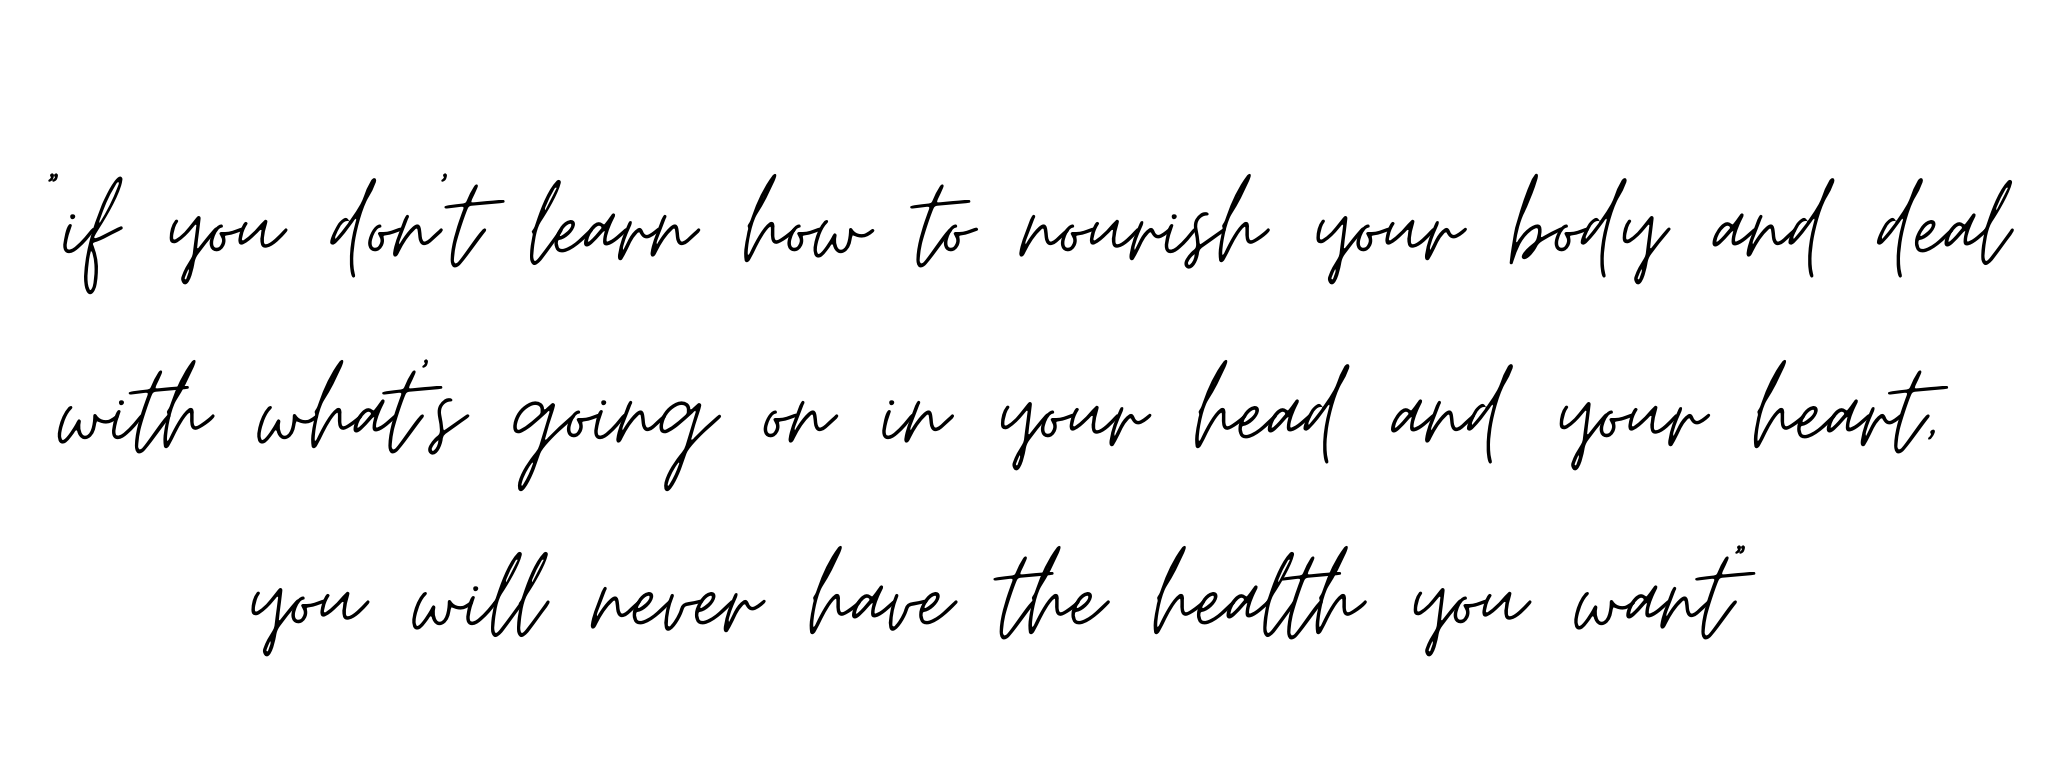 "if you don't learn how to nourish your body and deal
with what's going on in your head and your heart,
you will never have the health you want"